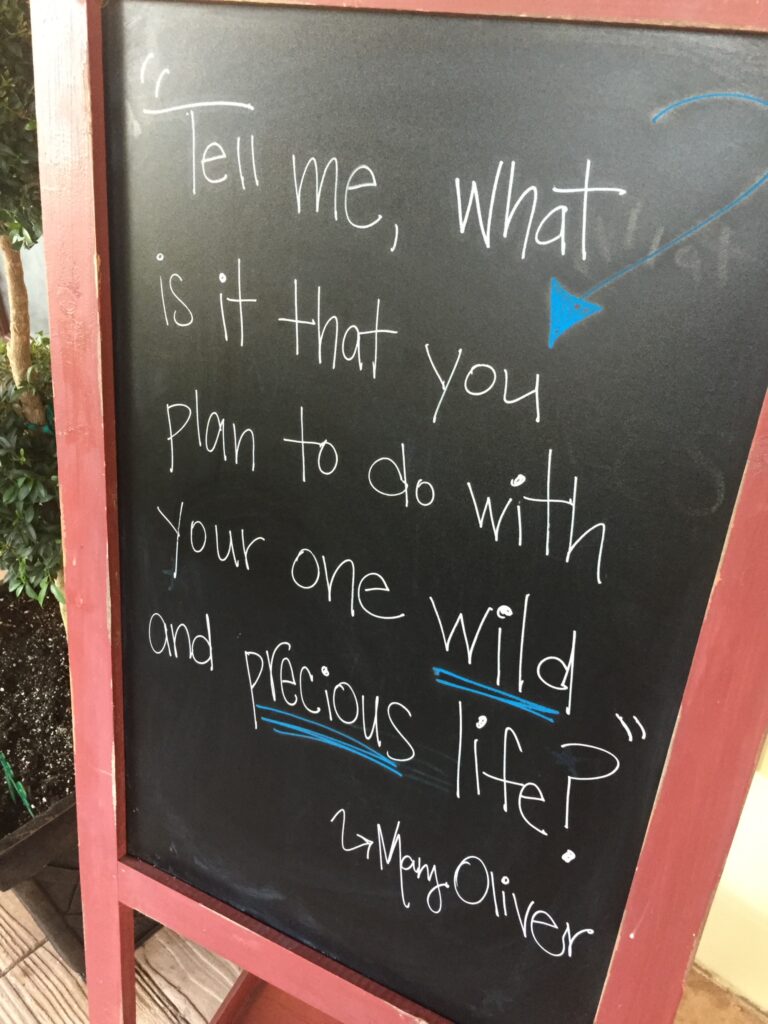 "Tell me, what
is it that you
plan to do with
your one wild
and precious life?"
Mary Oliver